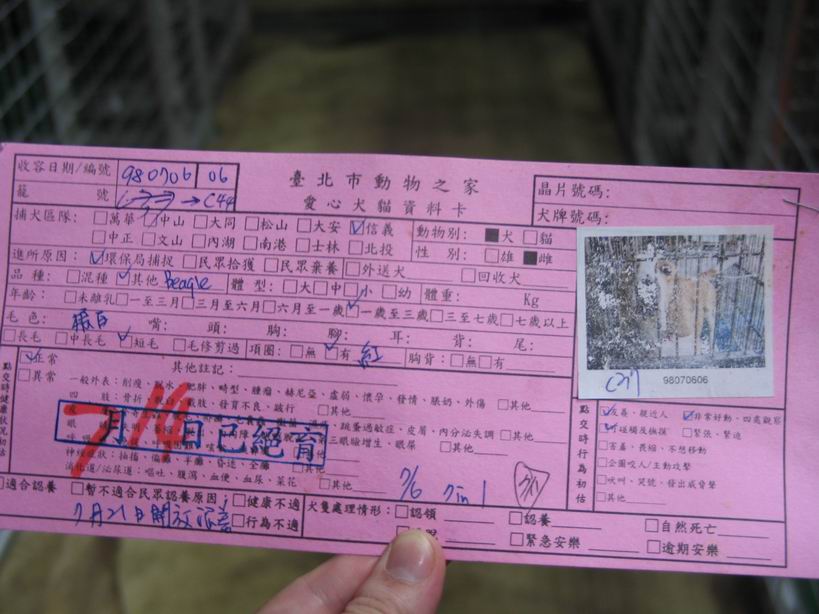 收容日期/編號 980706 06
臺北市動物之家
愛心犬貓資料卡
籠 號 → C44
晶片號碼:
犬牌號碼:
捕犬區隊: □萬華 □中山 □大同 □松山 □大安 ☑信義
□中正 □文山 □內湖 □南港 □士林 □北投
動物別: ■犬 □貓
性 別: □雄 ■雌
進所原因: ☑環保局捕捉 □民眾拾獲 □民眾棄養 □外送犬 □回收犬
品 種: □混種 ☑其他 Beagle 體 型: □大 □中 ☑小 □幼 體重: Kg
年齡: □未離乳 □一至三月 □三月至六月 □六月至一歲 ☑一歲至三歲 □三至七歲 □七歲以上
毛 色: 嘴: 頭: 胸: 腳: 耳: 背: 尾:
□長毛 □中長毛 ☑短毛 □毛修剪過 項圈: □無 ☑有 紅 胸背: □無 □有
98070606
點交時健康狀況初估
☑正常
□異常
其他註記:
一般外表:削瘦、脫水、肥胖、畸型、腫瘤、赫尼亞、虛弱、懷孕、發情、脹奶、外傷 □其他
四 肢:骨折、脫臼、截肢、發育不良、跛行 □其他
跳蚤過敏症、皮屑、內分泌失調 □其他
第三眼瞼增生、眼屎 □其他
月 日已絕育
7/11
神經症狀:抽搐、偏頭、半癱、昏迷、全癱 □其他
消化道/泌尿道:嘔吐、腹瀉、血便、血尿、菜花 □其他
7/6 7in1
點交時行為初估
☑友善、親近人 ☑非常好動、四處觀察
☑可碰觸及撫摸 □緊張、緊迫
□害羞、畏縮、不想移動
□企圖咬人/主動攻擊
□吠叫、哭號、發出威脅聲
□其他
□適合認養 □暫不適合民眾認養原因: □健康不適
□行為不適
7月21日開放認養
犬隻處理情形: □認領 □認養 □自然死亡
□緊急安樂 □逾期安樂